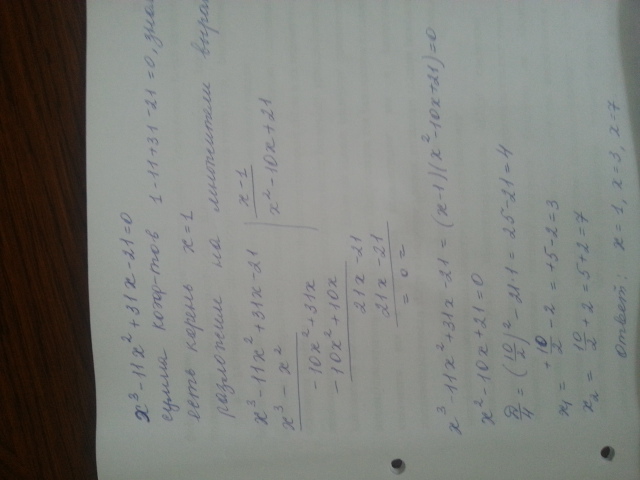 x³-11x²+31x-21=0
сумма коэф-тов 1-11+31-21=0,
есть корень x=1
разложим на множители
x³-11x²+31x-21 | x-1
x³-x² x²-10x+21
-10x²+31x
-10x²+10x
21x-21
21x-21
=0=
x³-11x²+31x-21=(x-1)(x²-10x+21)=0
x²-10x+21=0
D/4=(10/2)²-21·1=25-21=4
x₁=+10/2-2=+5-2=3
x₂=10/2+2=5+2=7
ответ: x=1, x=3, x=7